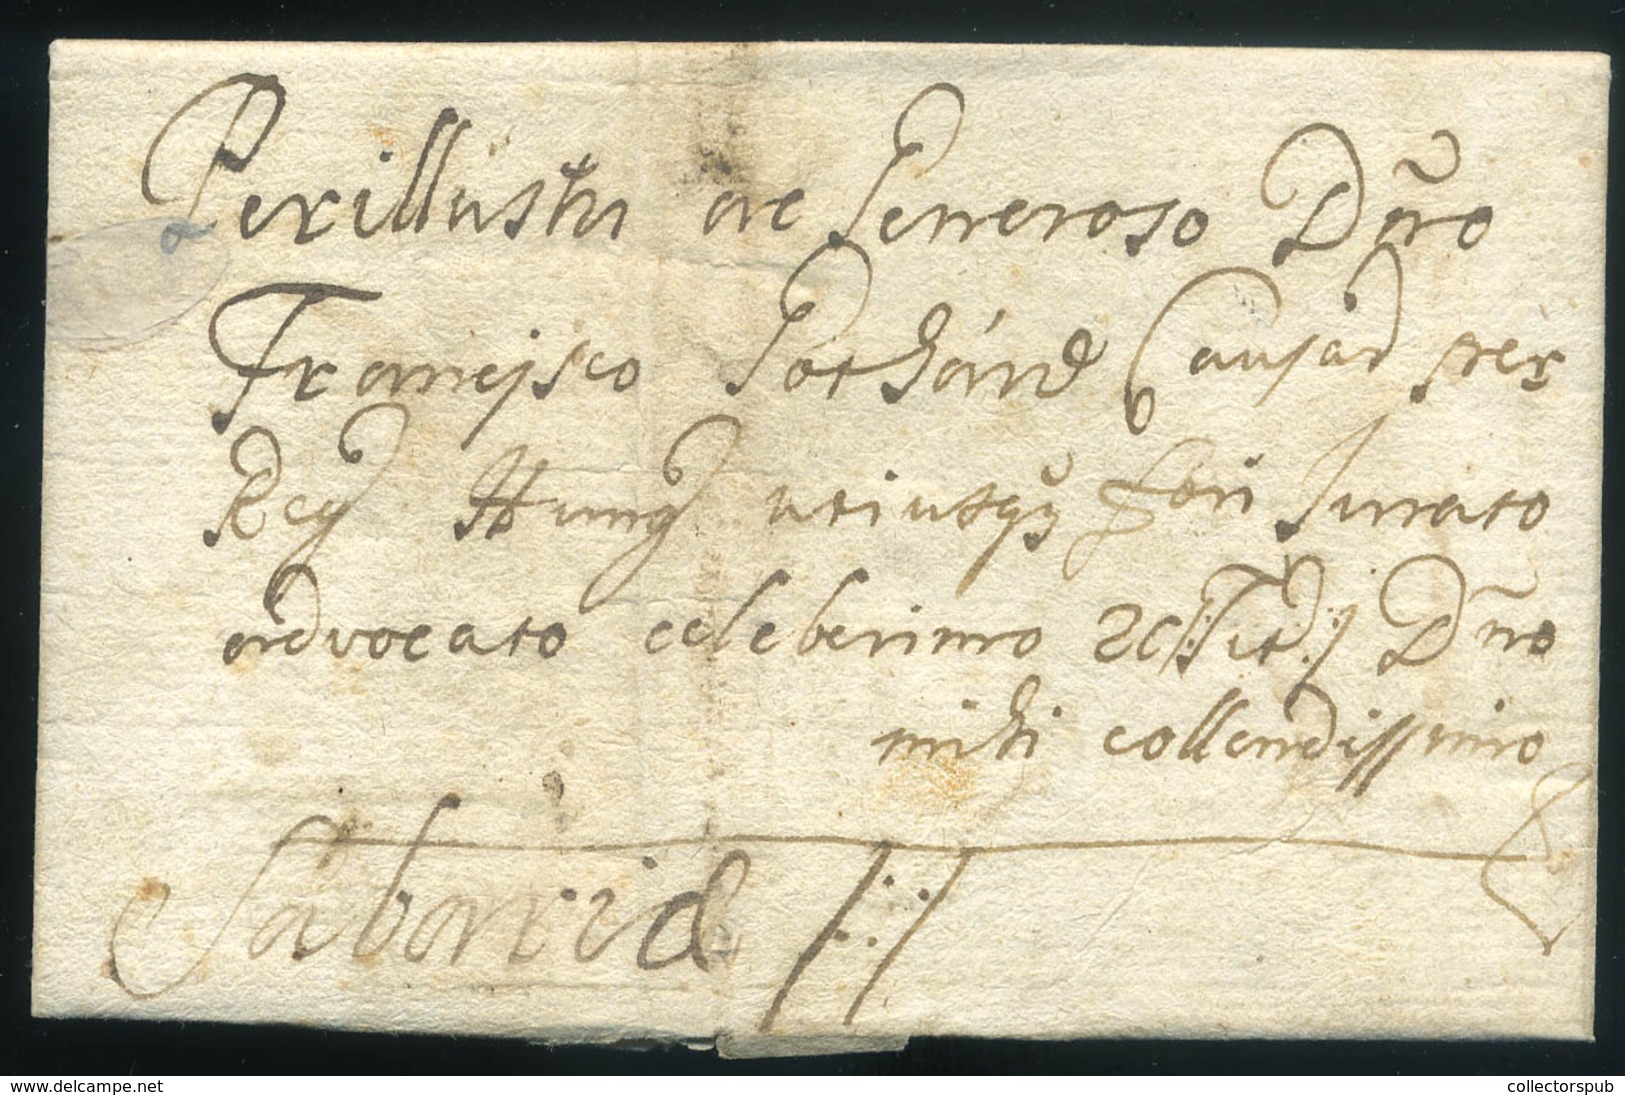 Perillustri ac Generoso Dño
Francisco Pothánd Causar per
Reg Hung utiusq̃ꝫ Fori Jurato
advocato celeberimo &c /: Tit :/ Dño
mihi collendissimo
Sabariæ /:/
www.delcampe.net
collectorspub